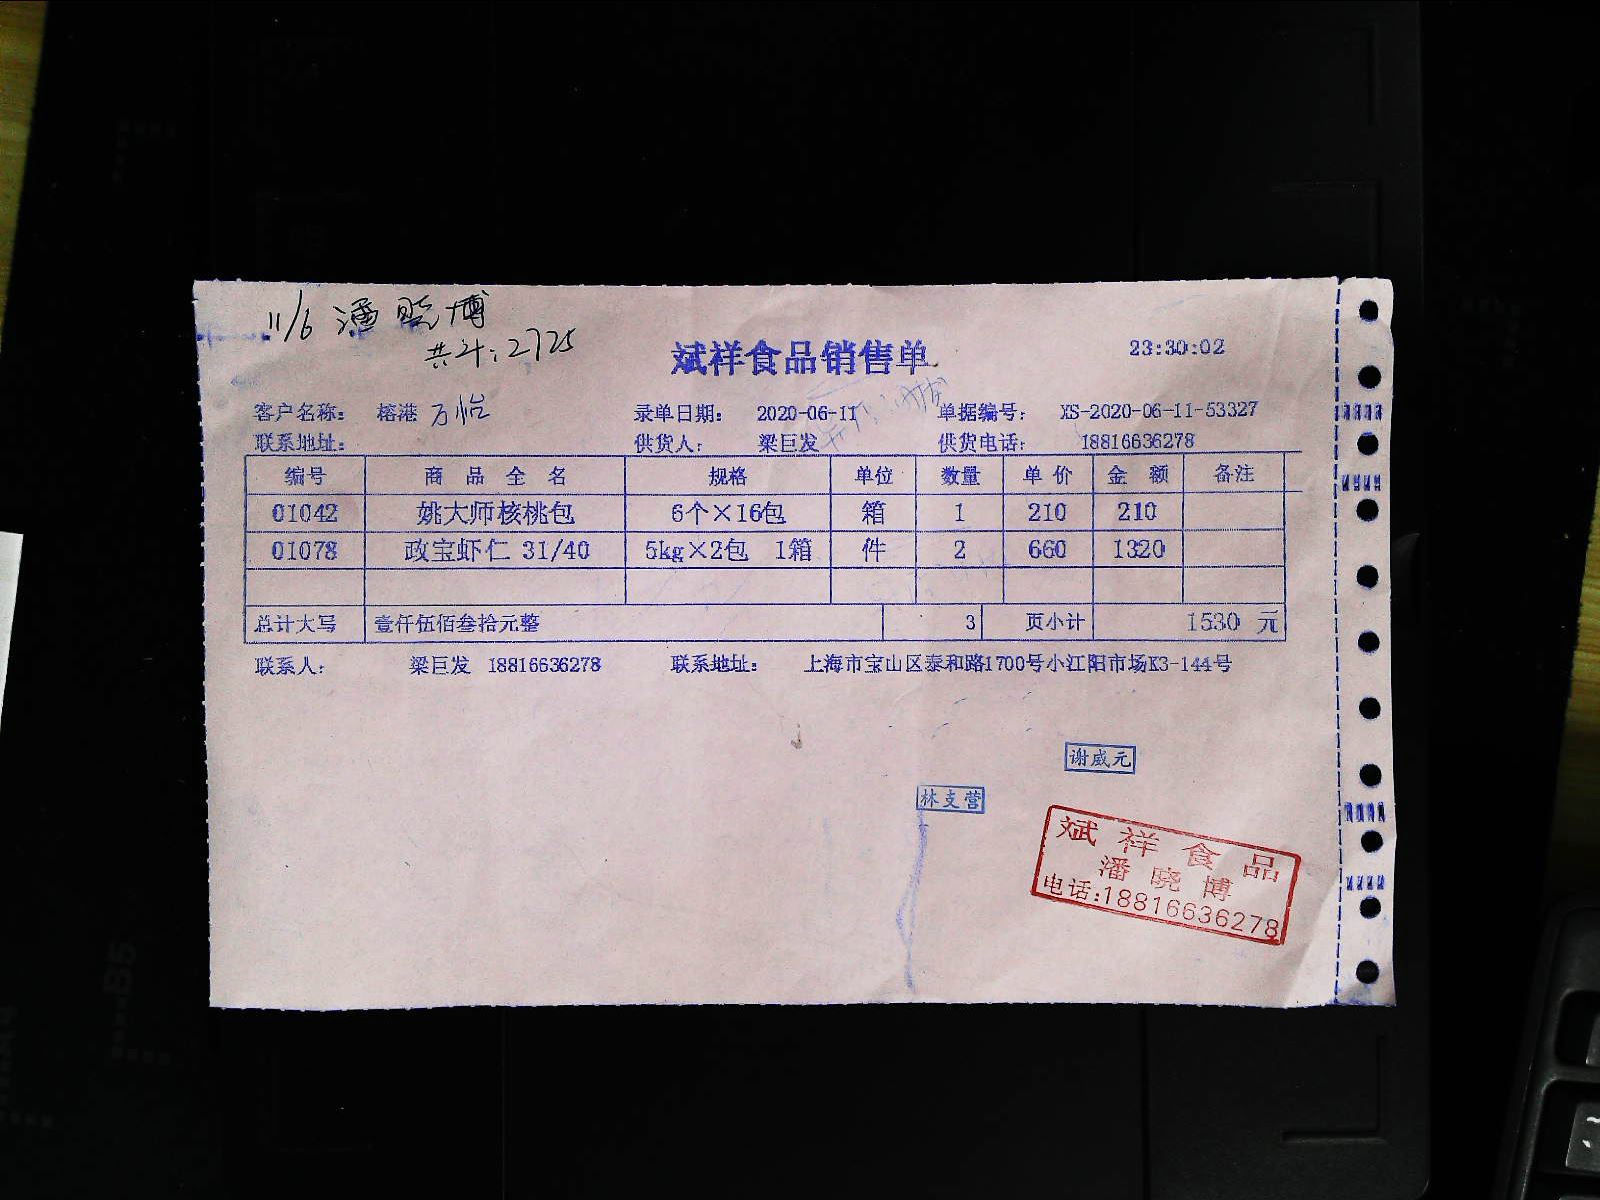 11/6 潘晓博
共计:2725
斌祥食品销售单
23:30:02
客户名称: 榕港 万怡 录单日期: 2020-06-11 单据编号: XS-2020-06-11-53327
联系地址: 供货人: 梁巨发 供货电话: 18816636278
编号 商品全名 规格 单位 数量 单价 金额 备注
01042 姚大师核桃包 6个×16包 箱 1 210 210
01078 政宝虾仁 31/40 5kg×2包 1箱 件 2 660 1320
总计大写 壹仟伍佰叁拾元整 3 页小计 1530 元
联系人: 梁巨发 18816636278 联系地址: 上海市宝山区泰和路1700号小江阳市场K3-144号
谢威元
林支营
斌祥食品
潘晓博
电话:18816636278